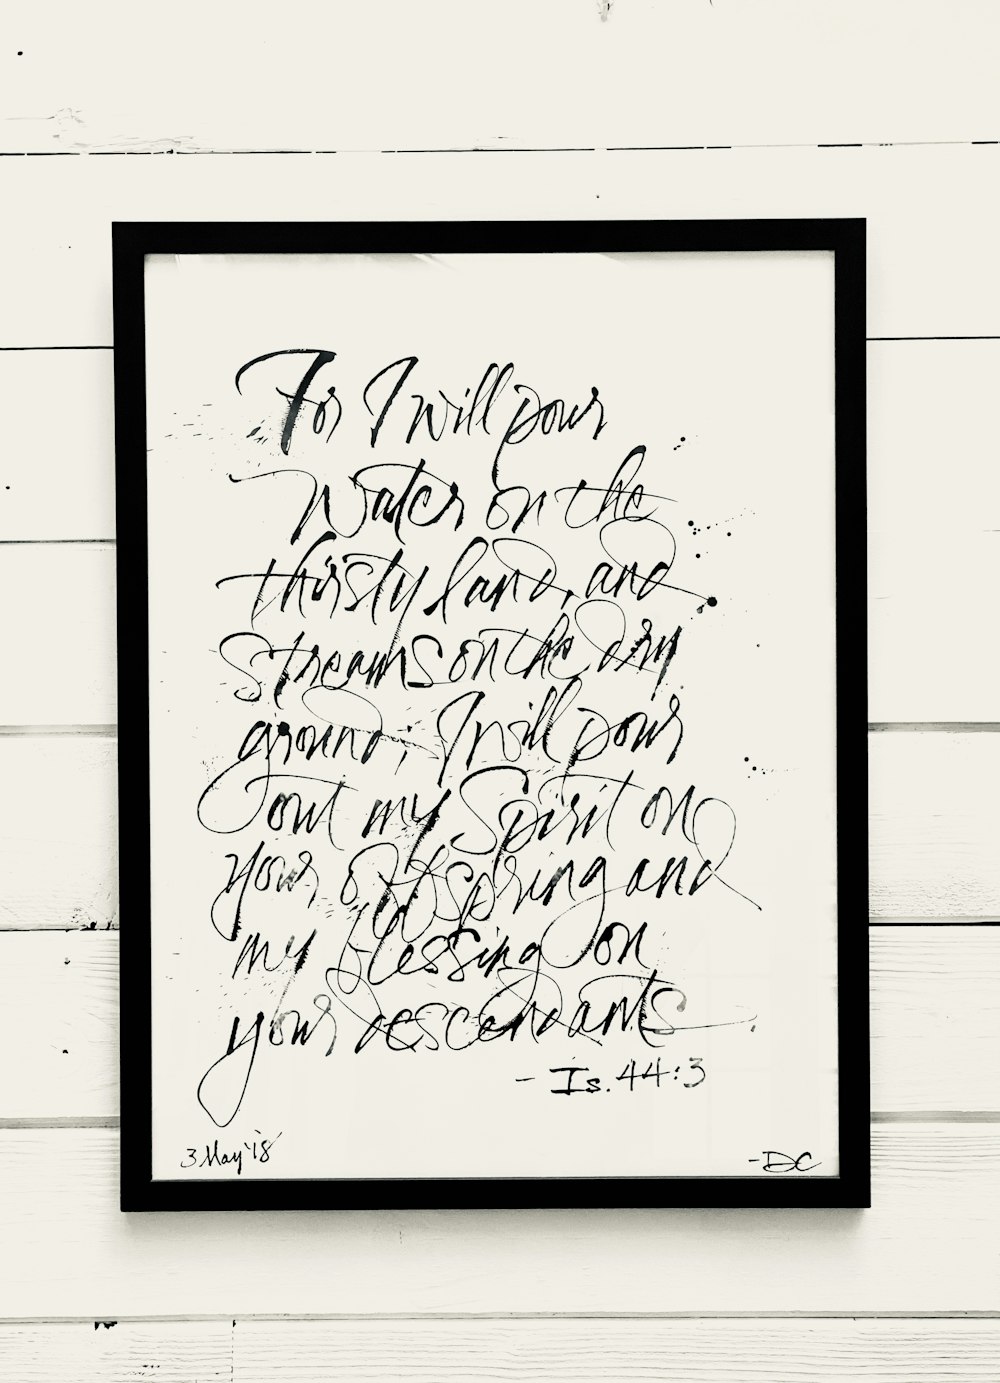 For I will pour
Water on the
thirsty land, and
Streams on the dry
ground; I will pour
out my Spirit on
your offspring and
my blessing on
your descendants.
- Is. 44:3
3 May '18
- DC